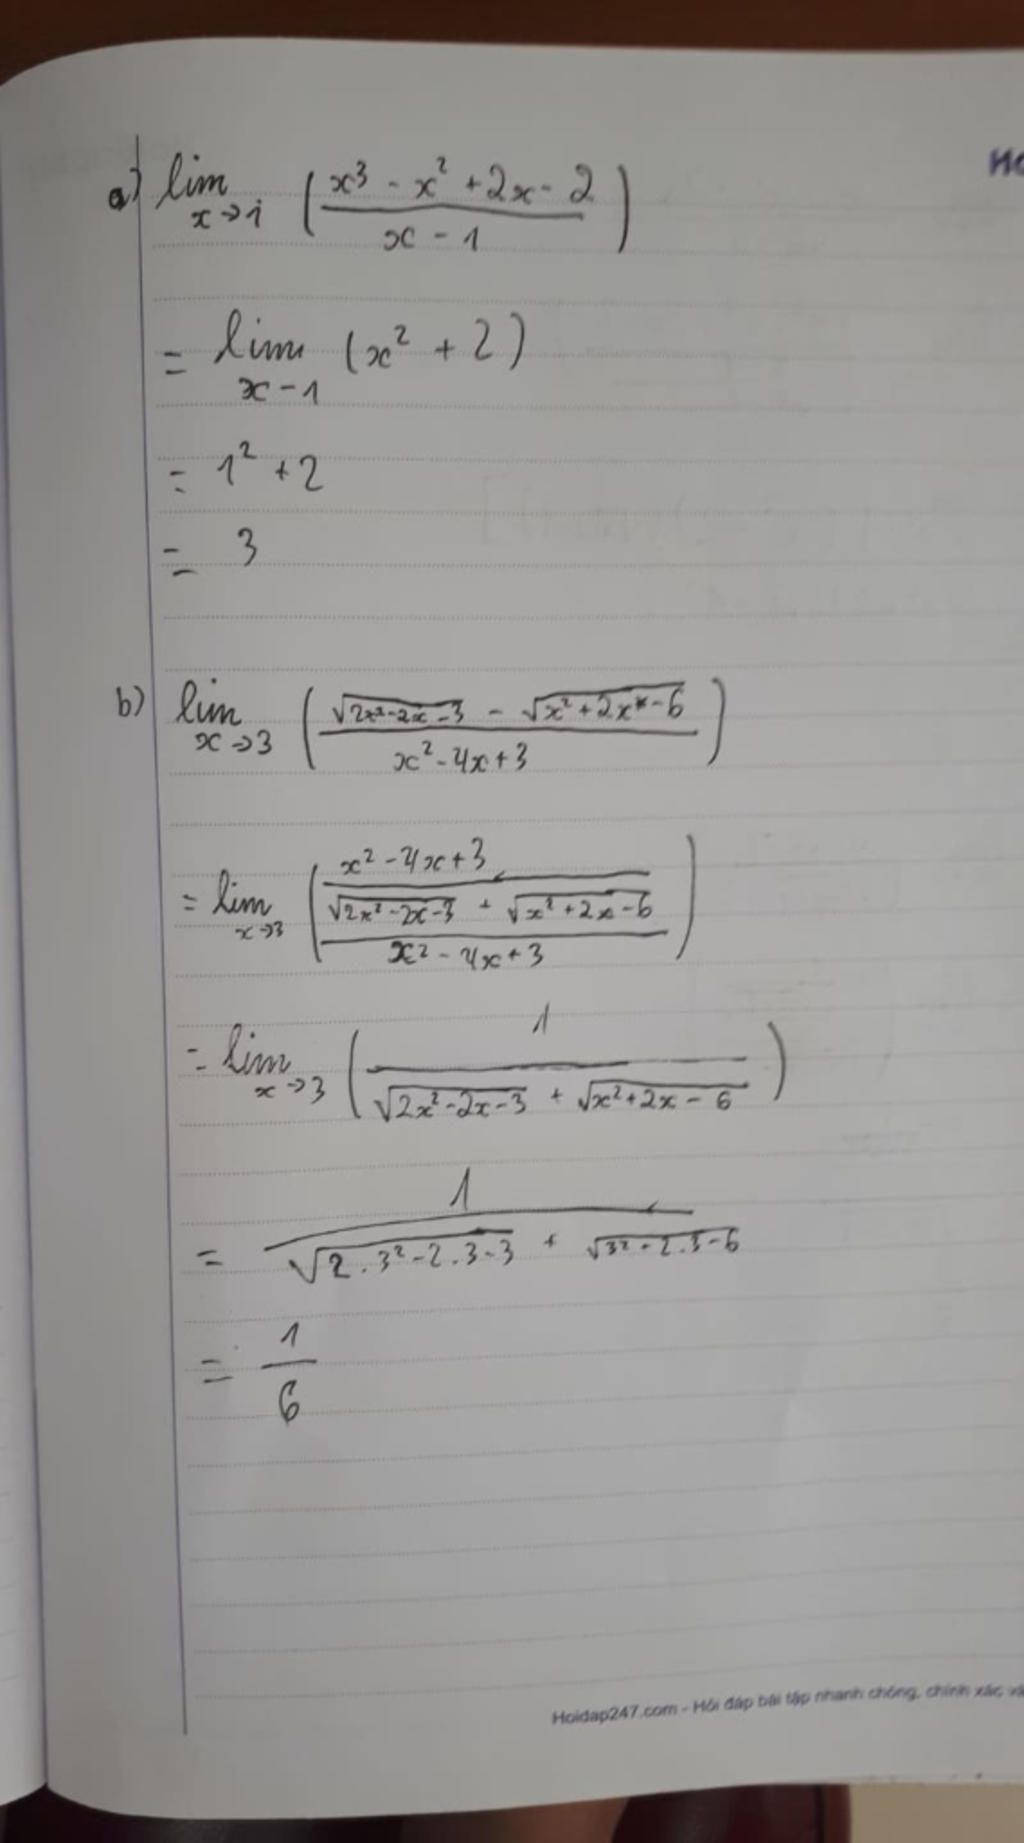 a) lim x→1 ( (x³ - x² + 2x - 2) / (x - 1) )
= lim x-1 (x² + 2)
= 1² + 2
= 3
b) lim x→3 ( (√(2x²-2x-3) - √(x²+2x-6)) / (x²-4x+3) )
= lim x→3 ( ((x²-4x+3) / (√(2x²-2x-3) + √(x²+2x-6))) / (x²-4x+3) )
= lim x→3 ( 1 / (√(2x²-2x-3) + √(x²+2x-6)) )
= 1 / (√(2.3²-2.3-3) + √(3²+2.3-6))
= 1/6
Hoidap247.com - Hỏi đáp bài tập nhanh chóng, chính xác và